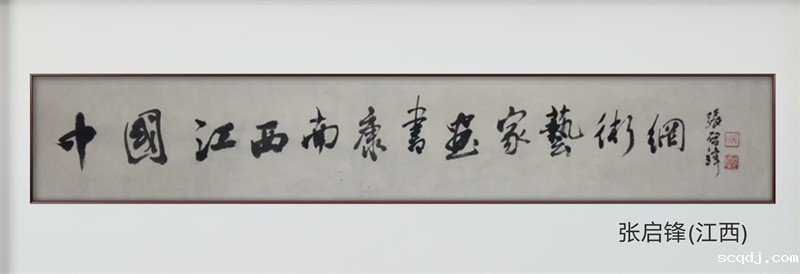 中國江西南康書画家藝術網
張启鋒
张启锋(江西)
scqdj.com